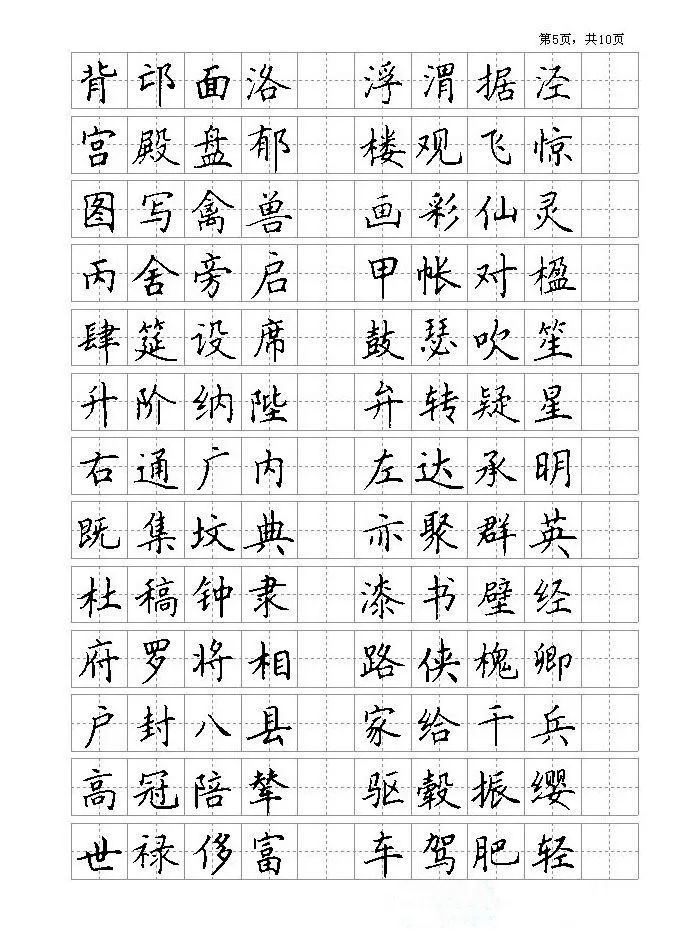 第5页，共10页
背邙面洛 浮渭据泾
宫殿盘郁 楼观飞惊
图写禽兽 画彩仙灵
丙舍旁启 甲帐对楹
肆筵设席 鼓瑟吹笙
升阶纳陛 弁转疑星
右通广内 左达承明
既集坟典 亦聚群英
杜稿钟隶 漆书壁经
府罗将相 路侠槐卿
户封八县 家给千兵
高冠陪辇 驱毂振缨
世禄侈富 车驾肥轻